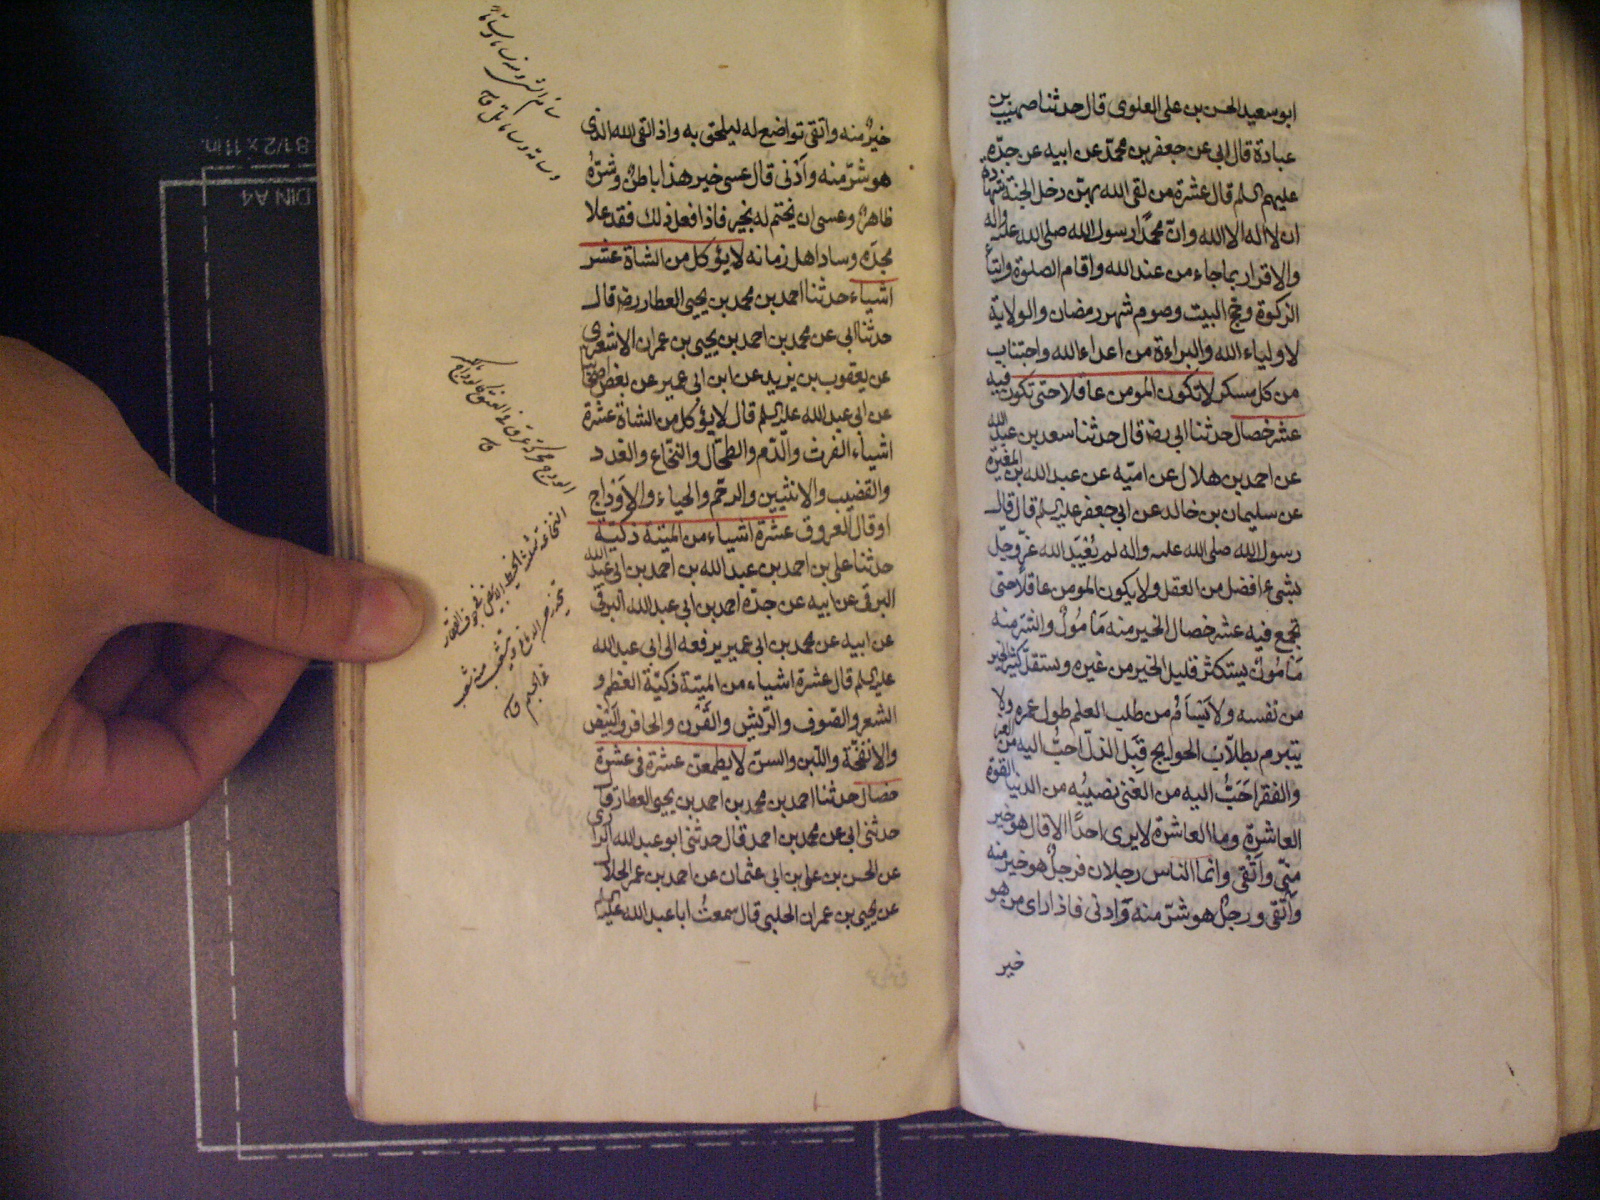 ابو سعيد الحسن بن على العلوى قال حدثنا صهيب بن
عبادة قال ابى عن جعفر بن محمد عن ابيه عن جدّه
عليهم السلم قال عشرة من لقى الله بهنّ دخل الجنة شهادة
ان لا اله الا الله وانّ محمدًا رسول الله صلى الله عليه واله
والاقرار بما جاء من عند الله واقام الصلوة وايتاء
الزكوة وحج البيت وصوم شهر رمضان والولاية
لاولياء الله والبراءة من اعداء الله واجتناب
من كل مسكر لا يكون المومن عاقلا حتى تكون فيه
عشر خصال حدثنا ابى رضه قال حدثنا سعد بن عبد الله
عن احمد بن هلال عن اميّه عن عبد الله بن المغيرة
عن سليمان بن خالد عن ابى جعفر عليه السلم قال قال
رسول الله صلى الله عليه واله لم يُعْبَد الله عزّ وجلّ
بشىء افضل من العقل ولا يكون المومن عاقلا حتى
تجمع فيه عشر خصال الخير منه مَأمُولٌ والشرّ منه
مَامُونٌ يستكثر قليل الخير من غيره ويستقلّ كثير الخير
من نفسه ولا يَسْأم من طلب العلم طول عمره ولا
يتبرم بطلّاب الحوايج قِبَل الذلّ احبُّ اليه من العز
والفقر احَبُّ اليه من الغنى نصيبُه من الدنيا القوة
العاشرة وما العاشرة لا يرى احدًا الا قال هو خير
منّى واتْقى وانما الناس رجلان فرجلٌ هو خير منه
واتْقى ورجلٌ هو شرّ منه وادنى فاذا راى من هو
خير
خيرٌ منه واتقى تواضع له ليلحق به واذا لقى الله الذى
هو شرّ منه وآدْنى قال عسى خير هذا باطنٌ وشرّهُ
ظاهرٌ وعسى ان يختم له بخير فاذا فعل ذلك فقد علا
مجدّه وساد اهل زمانه لا يؤكل من الشاة عشر
اشياء حدثنا احمد بن محمد بن يحيى العطار رضه قال
حدثنا ابى عن محمد بن احمد بن يحيى بن عمران الاشعرى
عن يعقوب بن يزيد عن ابن ابى عمير عن بعض اصحابنا
عن ابى عبد الله عليه السلم قال لا يؤكل من الشاة عشرة
اشياء الفرث والدّم والطحال والنخاع والغدد
والقضيب والانثيين والرحم والحياء والاوْداج
او قال العروق عشرة اشياء من الميتة ذكية
حدثنا على بن احمد بن عبد الله بن احمد بن ابى عبد الله
البرقى عن ابيه عن جدّه احمد بن ابى عبد الله البرقى
عن ابيه عن محمد بن ابى عمير يرفعه الى ابى عبد الله
عليه السلم قال عشرة اشياء من الميتة ذكيّة العظم و
الشعر والصوف والريش والقَرْن والحافر والبَيْض
والانفَحَة واللبن والسنّ لا يطمعن عشرة فى عشرة
خصال حدثنا احمد بن محمد بن احمد بن يحيى العطار قال
حدثنى ابى عن محمد بن احمد قال حدثنى ابو عبد الله الرازى
عن الحسن بن على بن ابى عثمان عن احمد بن عمر الحلال
عن يحيى بن عمران الحلبى قال سمعتُ ابا عبد الله عليه السلم
8 1/2 x 11 in.
DIN A4